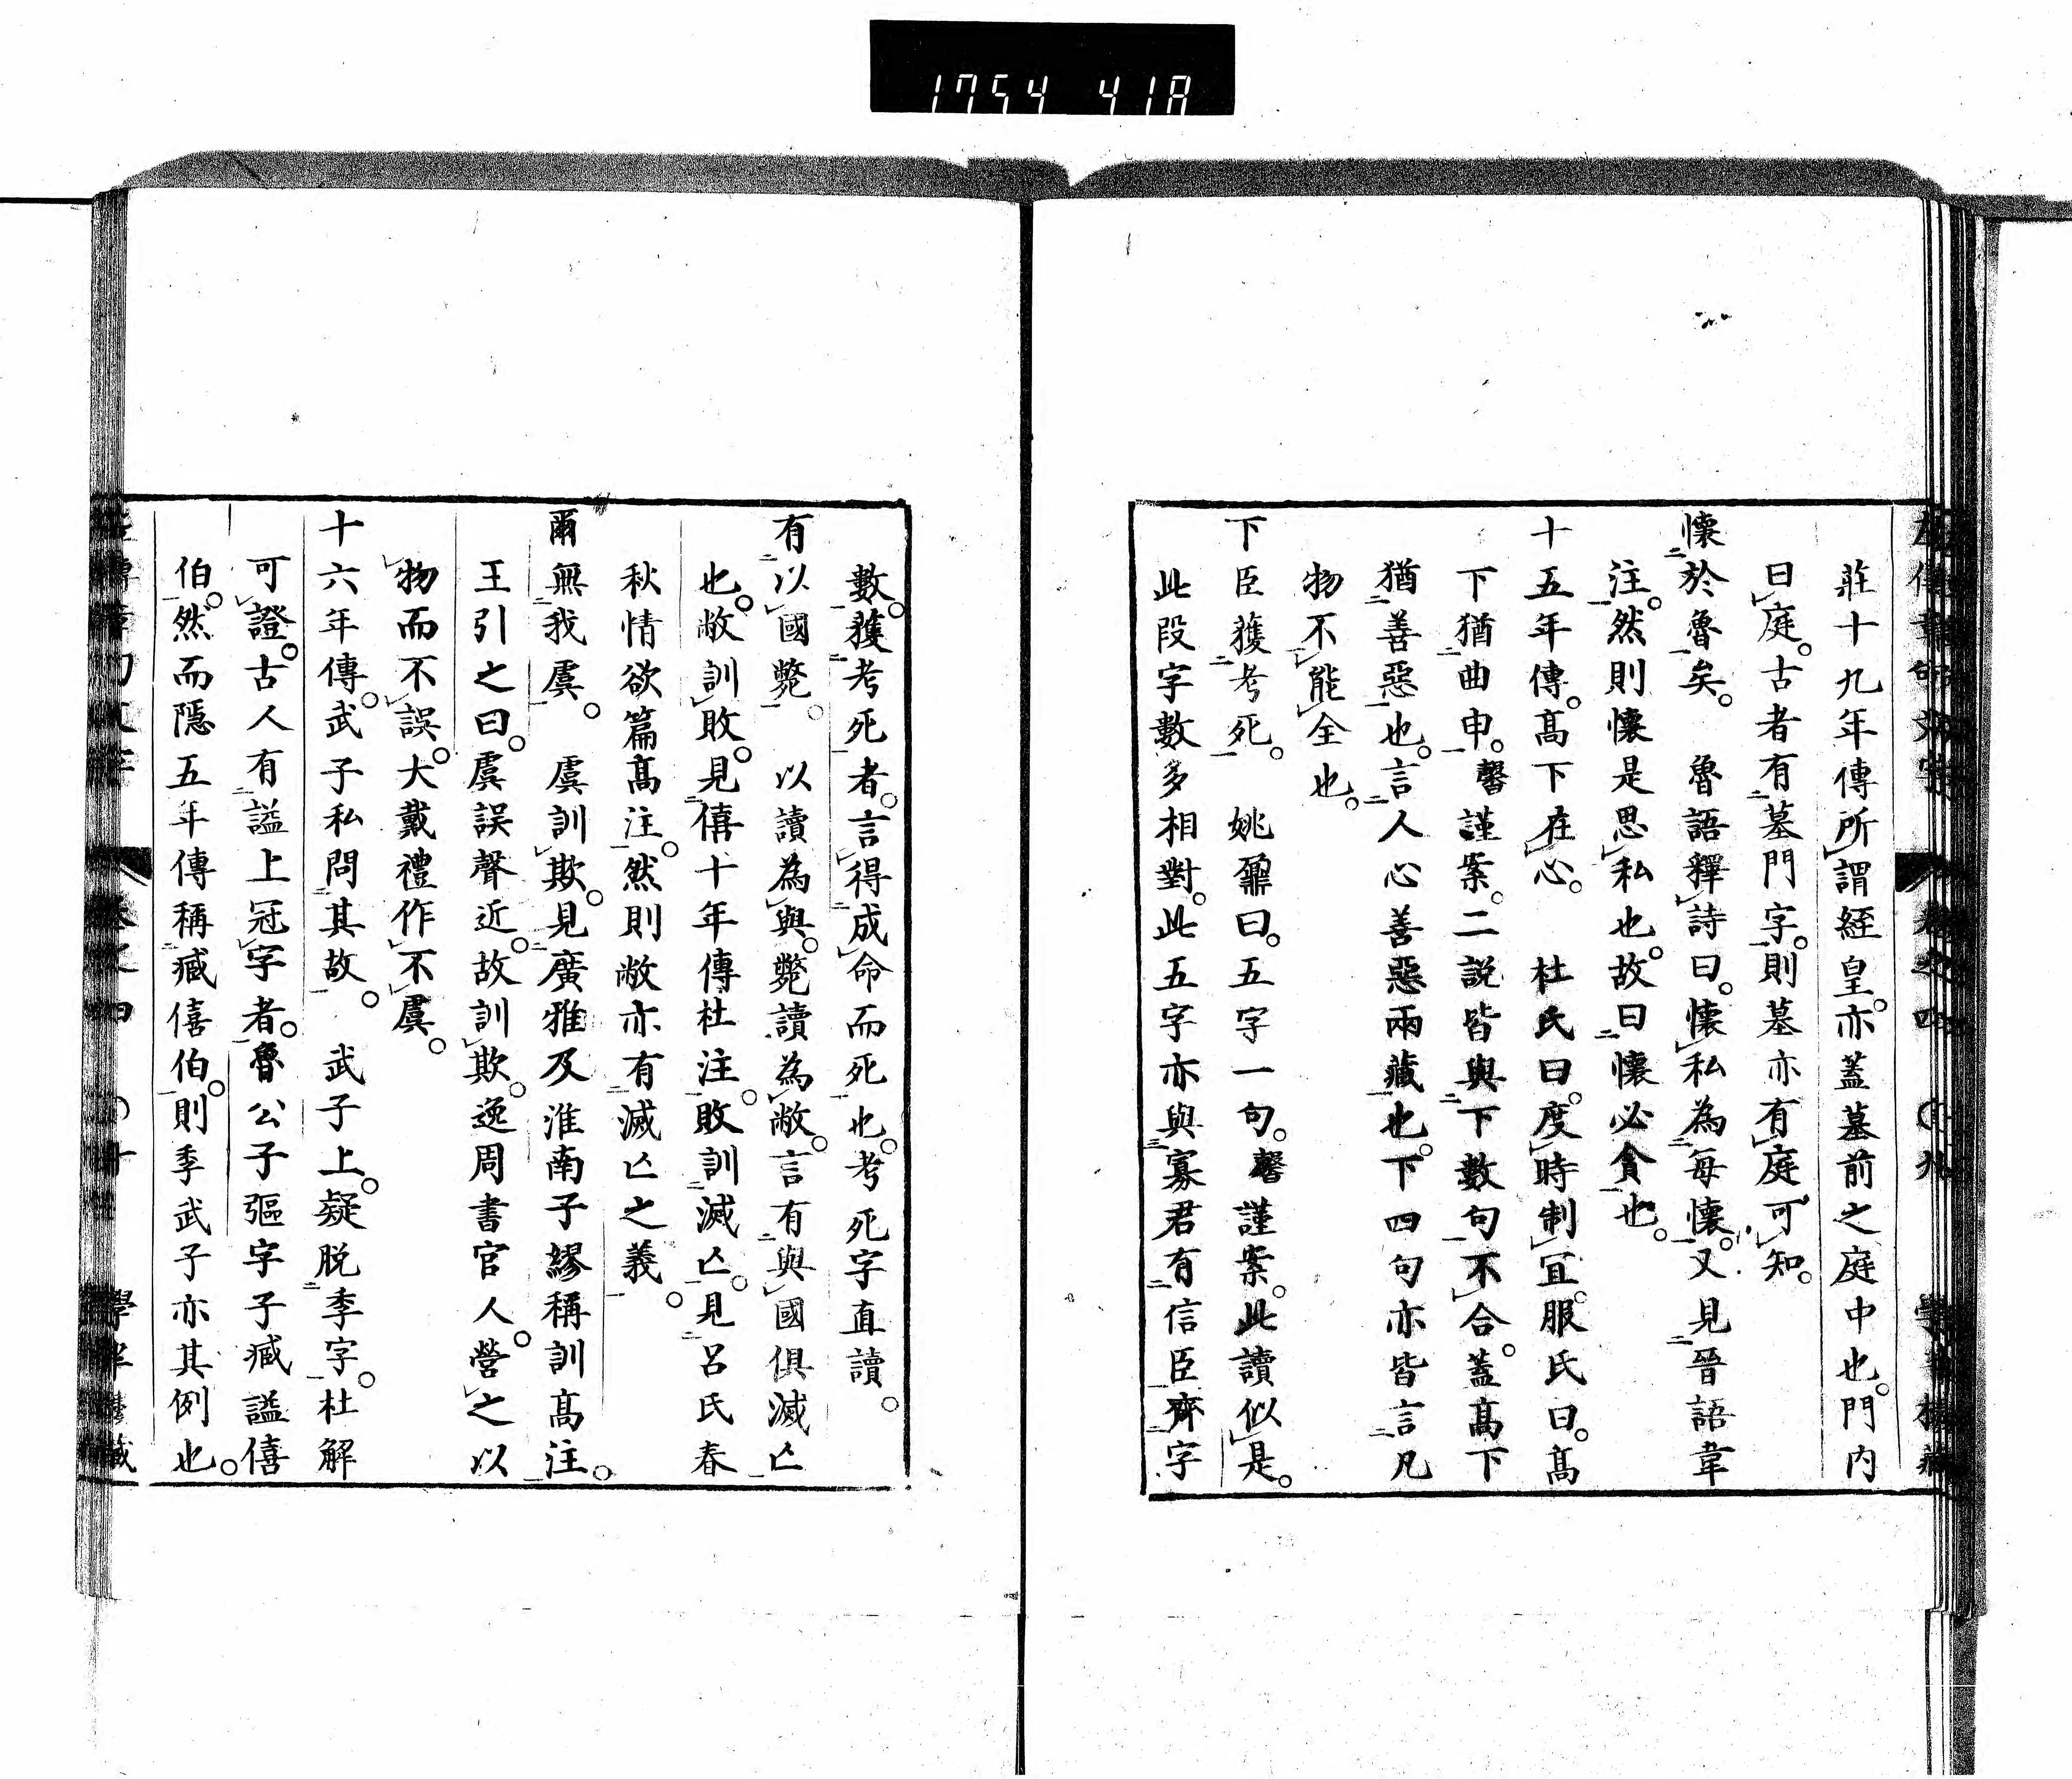 1754 41A
莊十九年傳所謂絰皇。亦蓋墓前之庭中也。門内
曰庭。古者有墓門字。則墓亦有庭可知。
懷於魯矣。 魯語釋詩曰。懷私為每懷。又見晉語韋
注。然則懷是思私也。故曰懷必貪也。
十五年傳。髙下在心。 杜氏曰。度時制冝。服氏曰。髙
下猶曲申。馨謹案。二説皆與下數句不合。蓋髙下
猶善惡也。言人心善惡兩藏也。下四句亦皆言凡
物不能全也。
下臣獲考死。 姚鼐曰。五字一句。馨謹案。此讀似是。
此段字數多相對。此五字亦與寡君有信臣齊字
數。獲考死者。言得成命而死也。考死字直讀。
有以國斃。 以讀為與。斃讀為敝。言有與國俱滅亡
也。敝訓敗。見僖十年傳杜注。敗訓滅亡。見呂氏春
秋情欲篇髙注。然則敝亦有滅亡之義。
爾無我虞。 虞訓欺。見廣雅及淮南子繆稱訓髙注。
王引之曰。虞誤聲近。故訓欺。逸周書官人。營之以
物而不誤。大戴禮作不虞。
十六年傳。武子私問其故。 武子上。疑脱季字。杜解
可證。古人有謚上冠字者。魯公子彄字子臧謚僖
伯。然而隱五年傳稱臧僖伯。則季武子亦其例也。